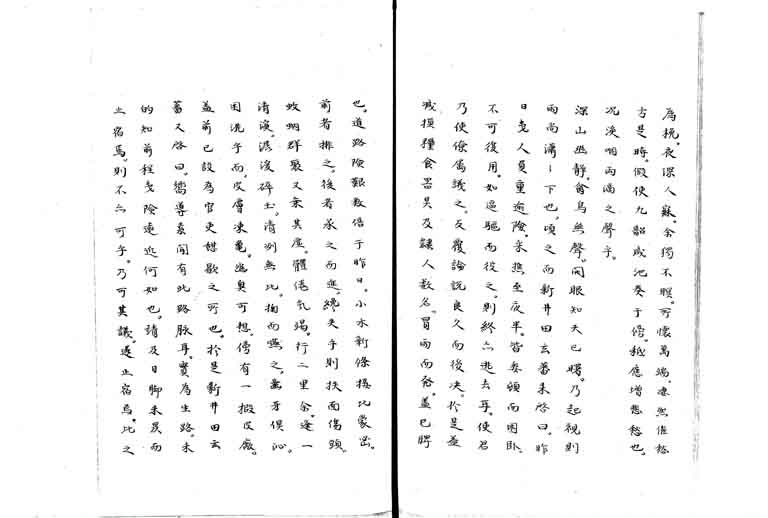 為枕。夜深人寂。余獨不暝。可懷萬端。凄然催愁
方是時。假使九韶咸池奏于傍。秖應增悲愁也。
況淡咽雨滴之聲乎。
深山幽靜。禽鳥無聲。開眼知天已曙。乃起視則
雨尚瀟々下也。頃之而新井田玄蕃来啓曰。昨
日曳人負重逾險。采樵至夜半。皆委頓而困臥。
不可復用。如逼驅而役之。則終亦逃去耳。使君
乃使僚属議之。反覆論說良久而後决。於是並
減損糧食器具及隷人数名。冒雨而發。蓋已牌
也。道路險艱数倍于昨日。小水新條搖比蒙密。
前者排之。後者承之而進。纔失手則扶面傷頭。
蚊蚋群聚又乗其虚。體倦気竭。行二里余。逢一
清淺。潺湲碎玉。清冽無比。掬而嚥之。齒牙俱沁。
因洗手面。皮膚凍龜。幽奥可想。傍有一椴皮廠。
蓋前已設為官吏媒歇之可也。於是新井田玄
蕃又啓曰。嚮導素聞有此路脉耳。實為生路。未
的知前程曳險遠近何如也。請及日脚未昃而
止宿焉。則不亦可乎。乃可其議。遂止宿焉。比之